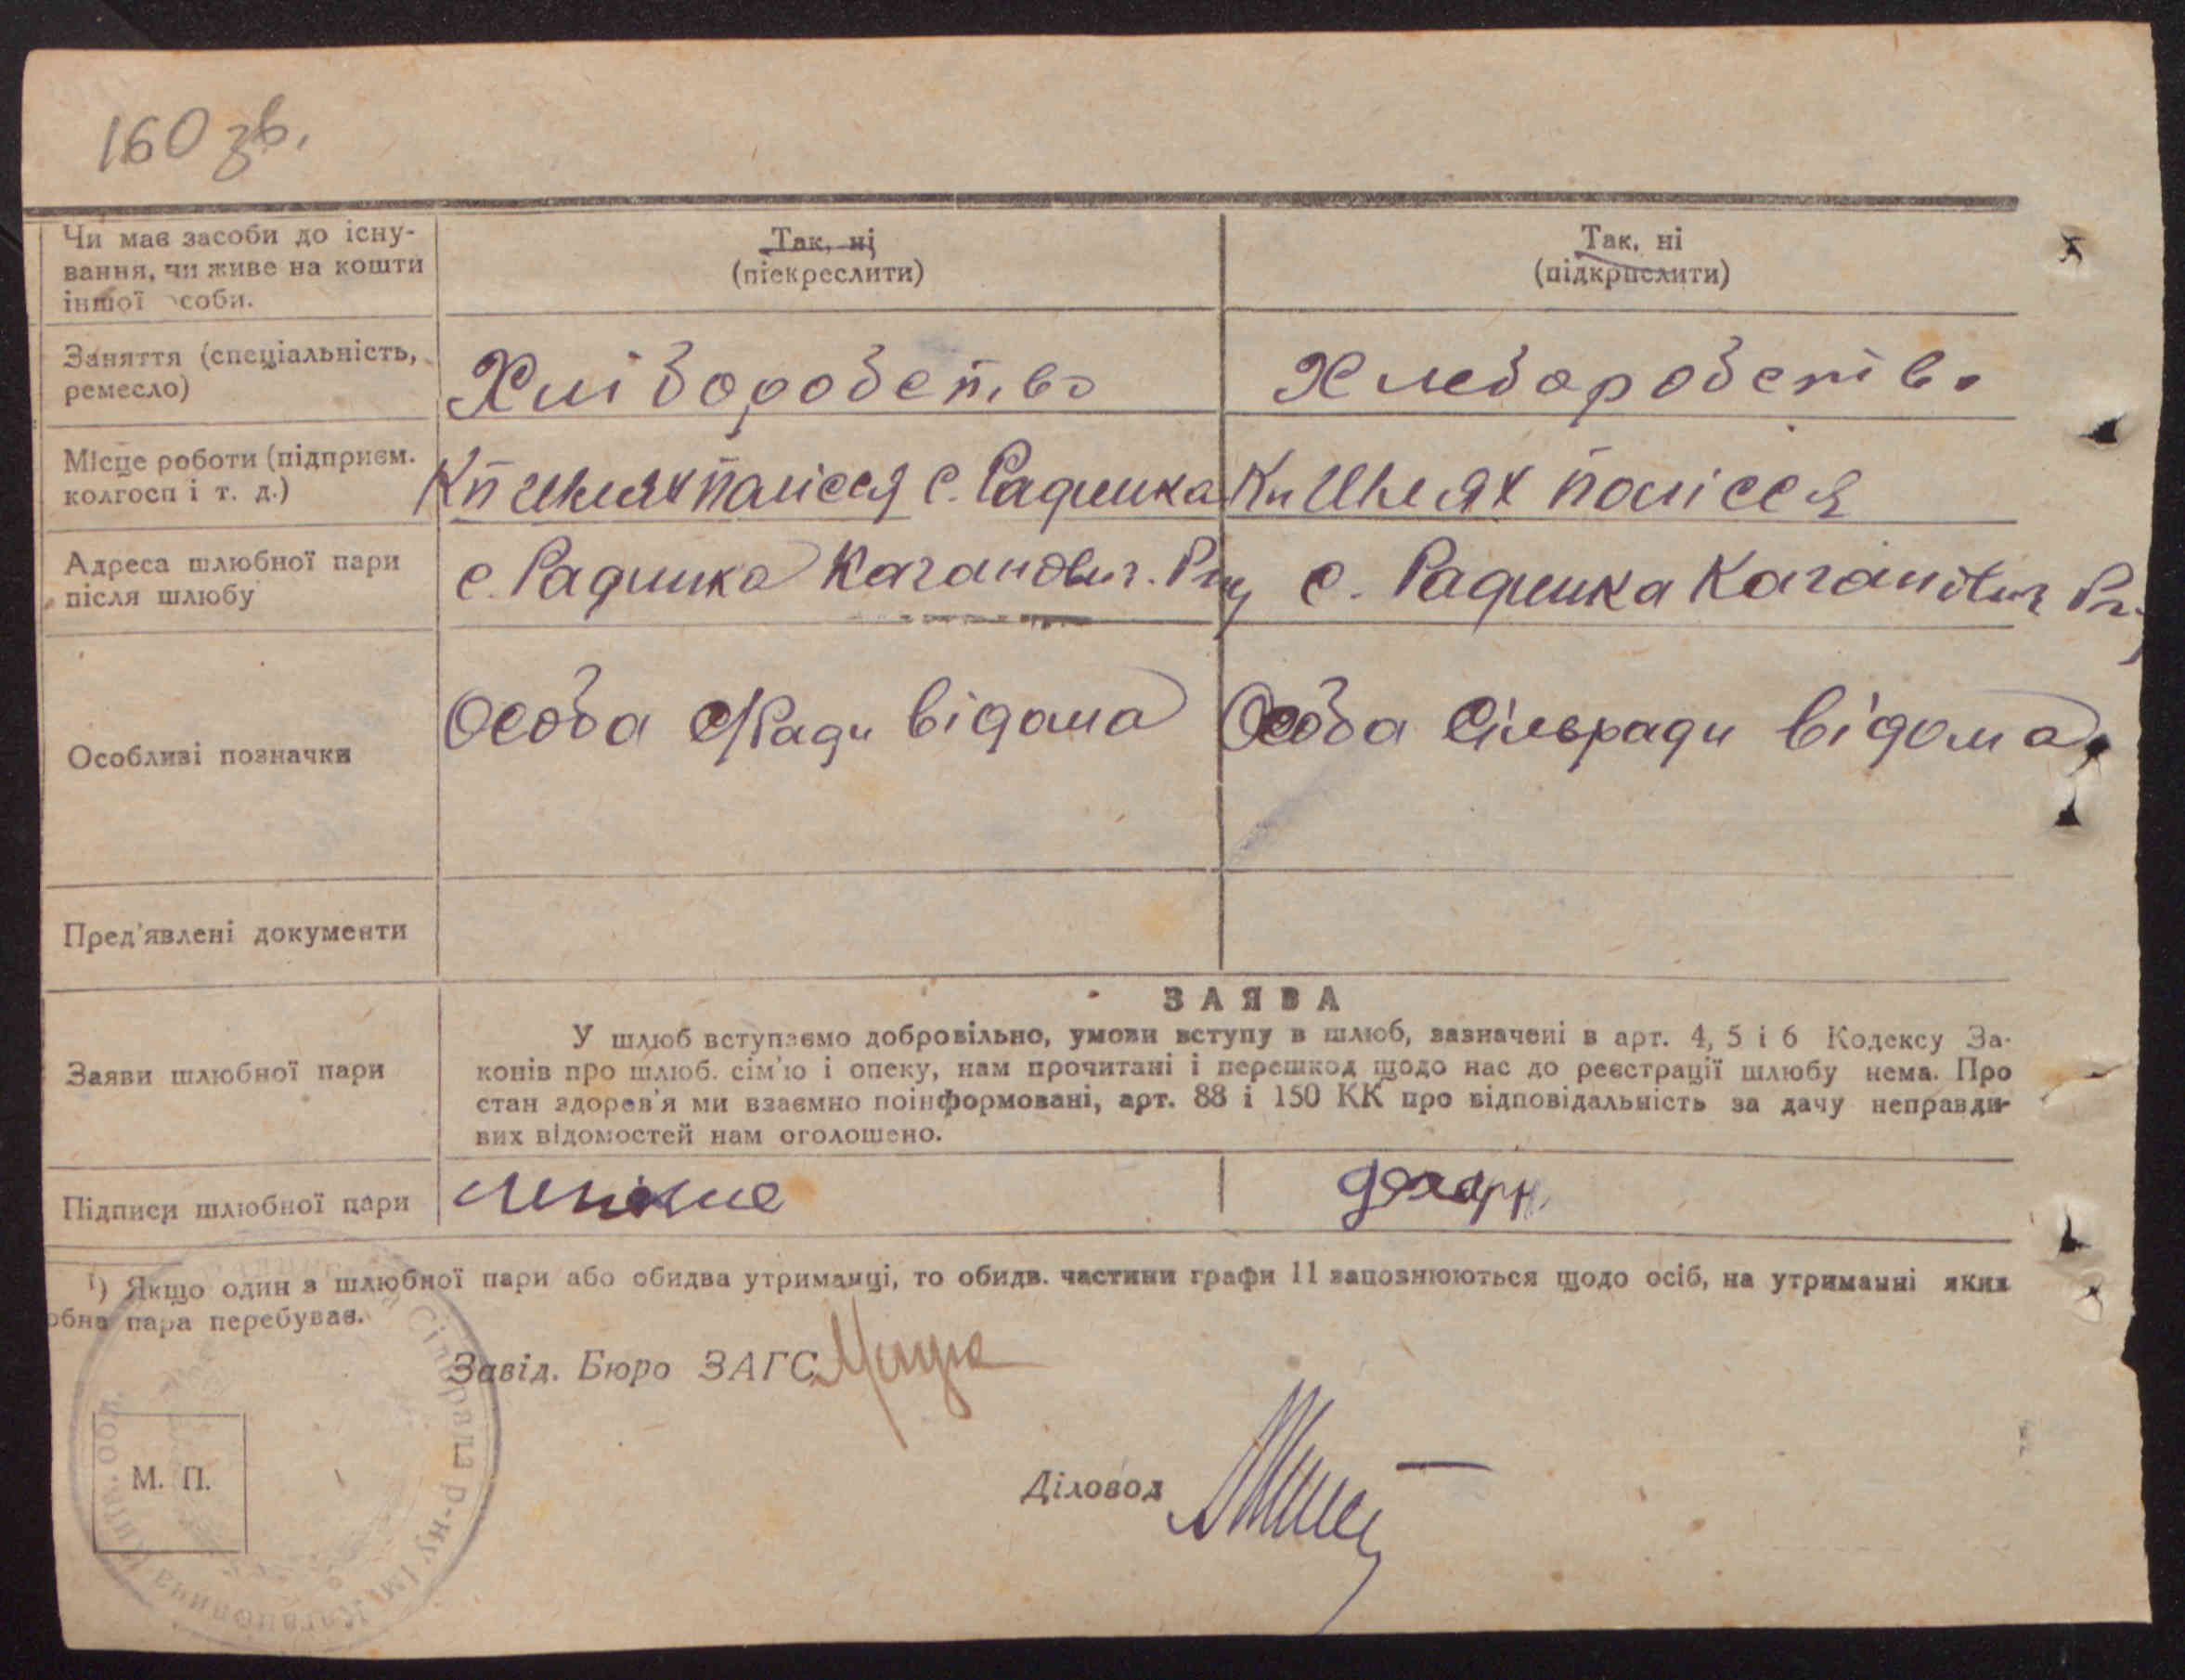 160 зв.
Чи має засоби до існу-
вання, чи живе на кошти
іншої особи.
Так, ні
(піекреслити)
Так, ні
(підкрпслити)
Заняття (спеціальність,
ремесло)
Хліборобство
Хлеборобство
Місце роботи (підприєм.
колгосп і т. д.)
Кп Шлях полісся с. Радинка
Кп Шлях полісся
Адреса шлюбної пари
після шлюбу
с. Радинка Каганович. Рну
с. Радинка Каганович Рну
Особливі позначки
Особа С/Ради відома
Особа Сільради відома
Пред'явлені документи
Заяви шлюбної пари
ЗАЯВА
У шлюб вступаємо добровільно, умови вступу в шлюб, зазначені в арт. 4, 5 і 6 Кодексу За-
конів про шлюб. сім'ю і опеку, нам прочитані і перешкод щодо нас до реєстрації шлюбу нема. Про
стан здоров'я ми взаємно поінформовані, арт. 88 і 150 КК про відповідальність за дачу неправди-
вих відомостей нам оголошено.
Підписи шлюбної пари
¹) Якщо один з шлюбної пари або обидва утриманці, то обидв. частини графи 11 заповнюються щодо осіб, на утриманні яких
обна пара перебуває.
Завід. Бюро ЗАГС
Діловод
М. П.
Сільрада р-ну ім. Кагановича